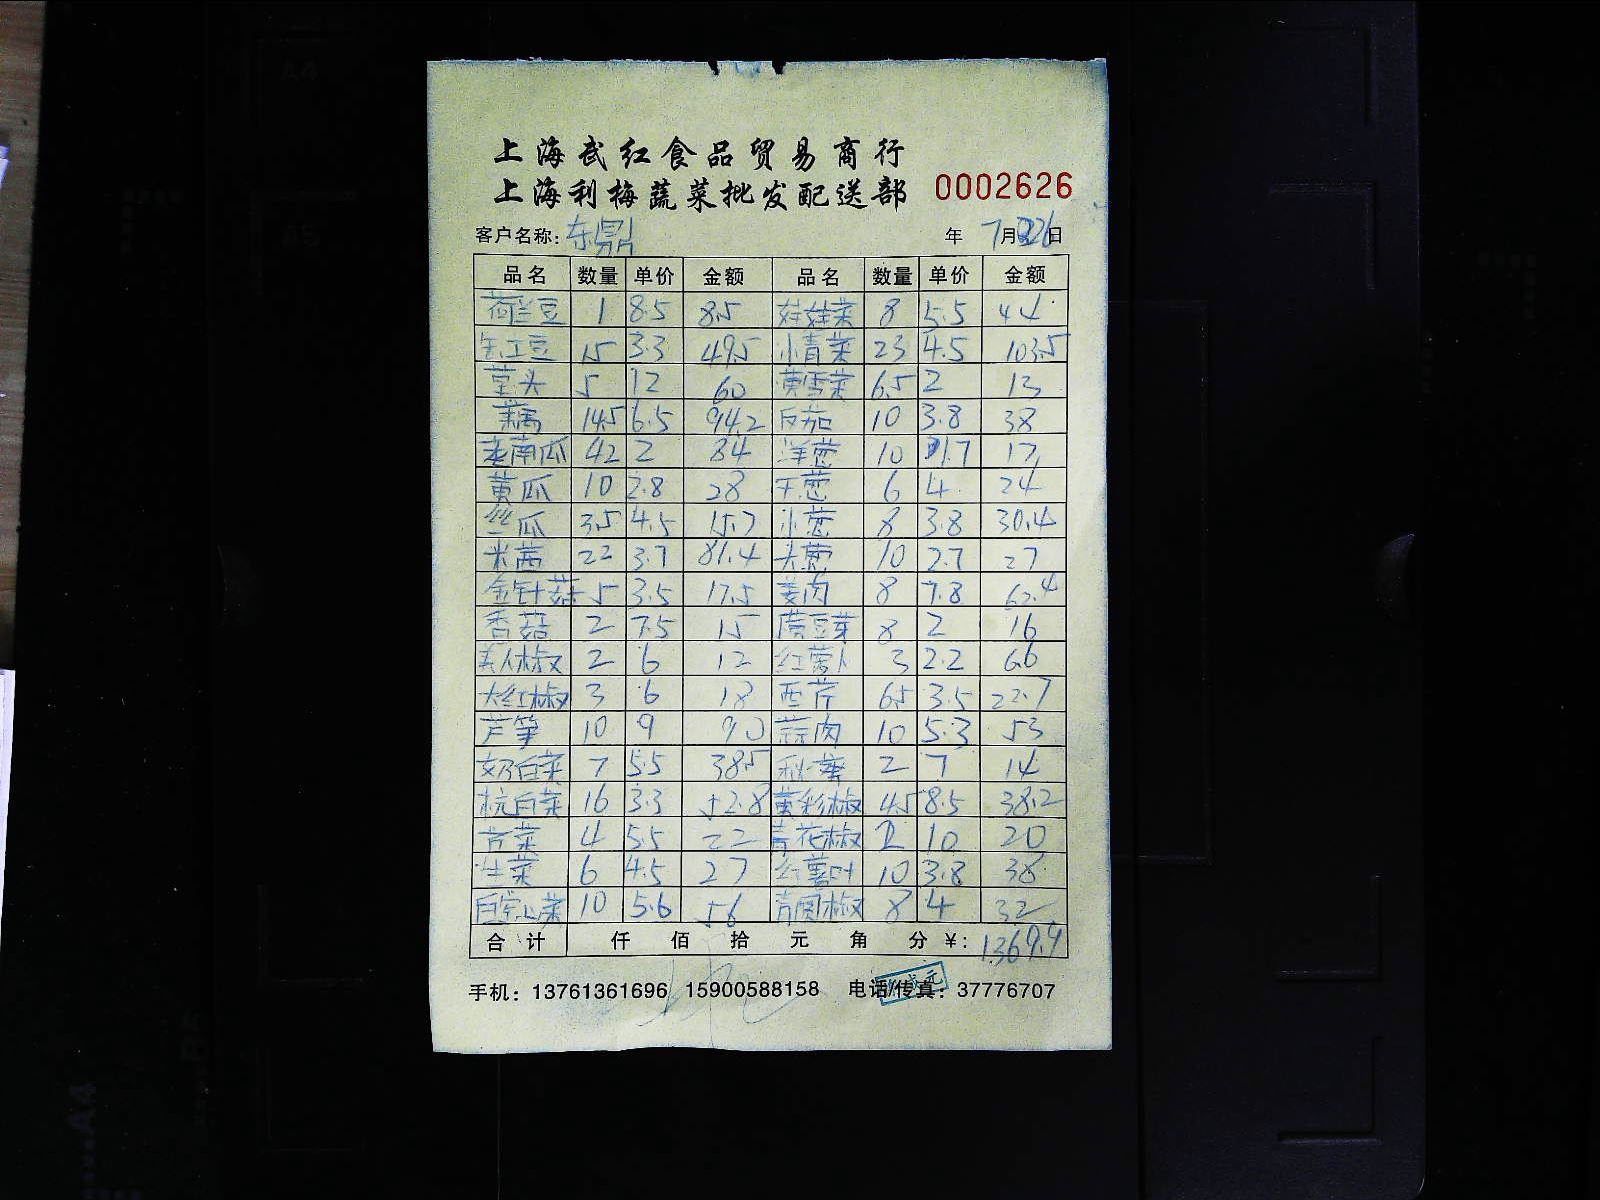 上海武红食品贸易商行
上海利梅蔬菜批发配送部 0002626
客户名称: 东鼎 年 7月26日
品名 数量 单价 金额 品名 数量 单价 金额
荷兰豆 1 8.5 8.5 娃娃菜 8 5.5 44
缸豆 15 3.3 49.5 小青菜 23 4.5 103.5
茎头 5 12 60 菜 6.5 2 13
藕 14.5 6.5 94.2 茄 10 3.8 38
老南瓜 42 2 84 洋葱 10 1.7 17
黄瓜 10 2.8 28 葱 6 4 24
丝瓜 3.5 4.5 15.7 小葱 8 3.8 30.4
米茜 22 3.7 81.4 10 2.7 27
金针菇 5 3.5 17.5 姜肉 8 7.8 62.4
香菇 2 7.5 15 豆芽 8 2 16
美人椒 2 6 12 红萝卜 3 2.2 6.6
大红椒 3 6 18 西芹 6.5 3.5 22.7
芦笋 10 9 90 蒜肉 10 5.3 53
奶白菜 7 5.5 38.5 2 7 14
杭白菜 16 3.3 52.8 黄彩椒 4.5 8.5 38.2
芹菜 4 5.5 22 青花椒 2 10 20
生菜 6 4.5 27 红薯叶 10 3.8 38
菜 10 5.6 56 青圆椒 8 4 32
合计 仟 佰 拾 元 角 分 ¥: 1369.9
手机: 13761361696 15900588158 电话/传真: 37776707